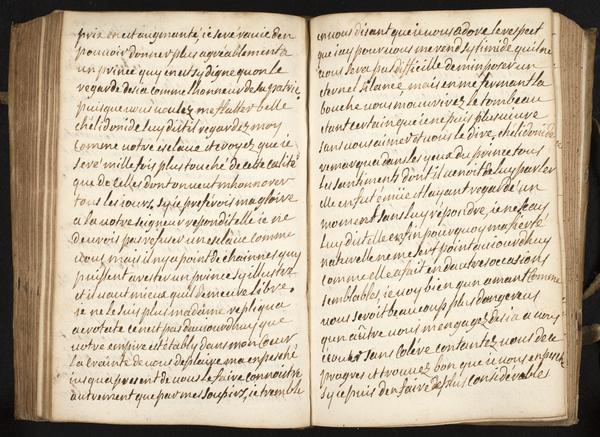 prix en est augmanté, ie seré ravie den
pouvoir donner plus agreablement a
un prince quy en est sy digne quon le
regarde desia comme lhonneur de sa patrie
puisque vous voulez me flater belle
chélidonide luy dit il regardez moy
comme votre esclave et croyez que ie
seré mille fois plus touché de cette calité
que de celles dont on veut mhonnorer
tous les iours, sy ie preferois ma gloire
a la votre seigneur repondit elle ie ne
devrois pas refuser un esclave comme
vous, mais il ny a point de chainnes quy
puissent arester un prince sy illustre
et il vaut mieux quil demeure libre,
ie ne le suis plus madame repliqua
ce nest pas daujourdhuy que
votre empire est étably dans mon coeur
la crainte de vous deplaire ma enpesché
iusqua present de vous le faire connoistre
autrement que par mes soupirs, ie tremble
en vous disant que ie vous adore le respect
que iay pour vous me rend sy timide quil ne
vous sera pas difficille de minposer un
eternel silance, mais en me fermant la
bouche vous mouvrirez le tombeau
étant certain que ie ne puis plus vivre
sans vous aimer et vous le dire, chelidonide
remarqua dans les yeux du prince tous
les santiments dont il venoit de luy parler
elle en fut émüe et layant regardé un
moment sans luy répondre, ie ne scay
luy dit elle enfin pourquoy ma fierté
naturelle ne me sert point aujourdhuy
comme elle a fait en dautres occasions
semblables, ie voy bien quun amant comme
vous seroit beaucoup plus dangereux
quun autre vous mengagez desia a vous
ecouter sans colere contantez vous de ce
progres et trouvez bon que ie vous enpesche
sy ie puis den faire de plus considerables